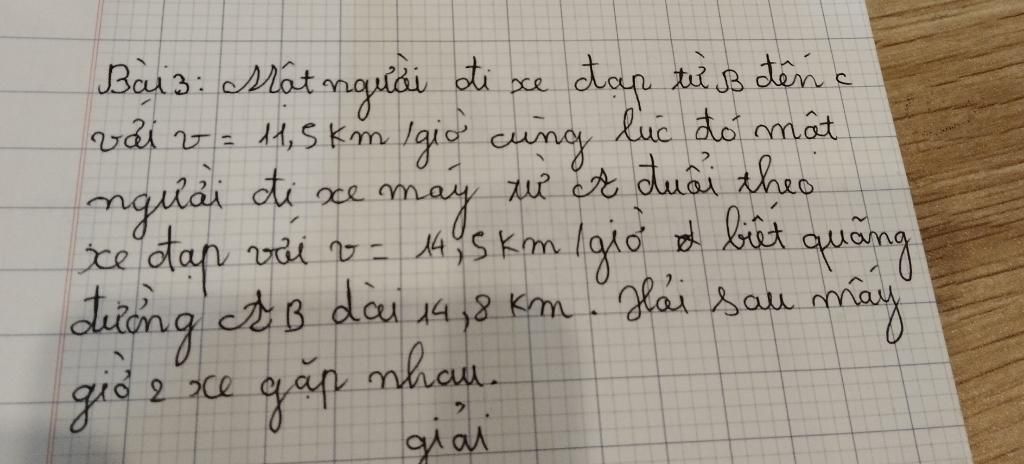 Bài 3: Một người đi xe đạp từ B đến C
với v = 11,5 km/giờ cùng lúc đó một
người đi xe máy từ A đuổi theo
xe đạp với v = 14,5 km/giờ biết quãng
đường AB dài 14,8 km. Hỏi sau mấy
giờ 2 xe gặp nhau.
giải